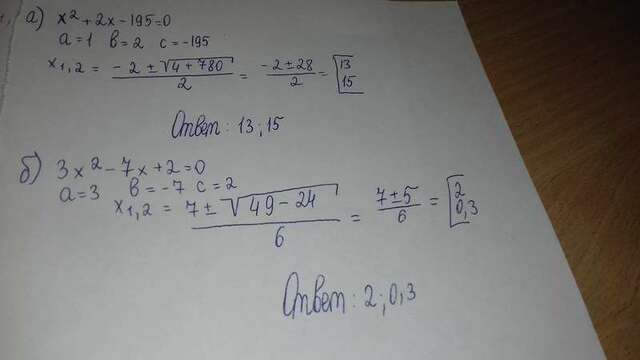 а) x² + 2x - 195 = 0
a = 1 b = 2 c = -195
x₁,₂ = (-2 ± √(4 + 780))/2 = (-2 ± 28)/2 = [13
15
Ответ: 13; 15
б) 3x² - 7x + 2 = 0
a = 3 b = -7 c = 2
x₁,₂ = (7 ± √(49 - 24))/6 = (7 ± 5)/6 = [2
0,3
Ответ: 2; 0,3